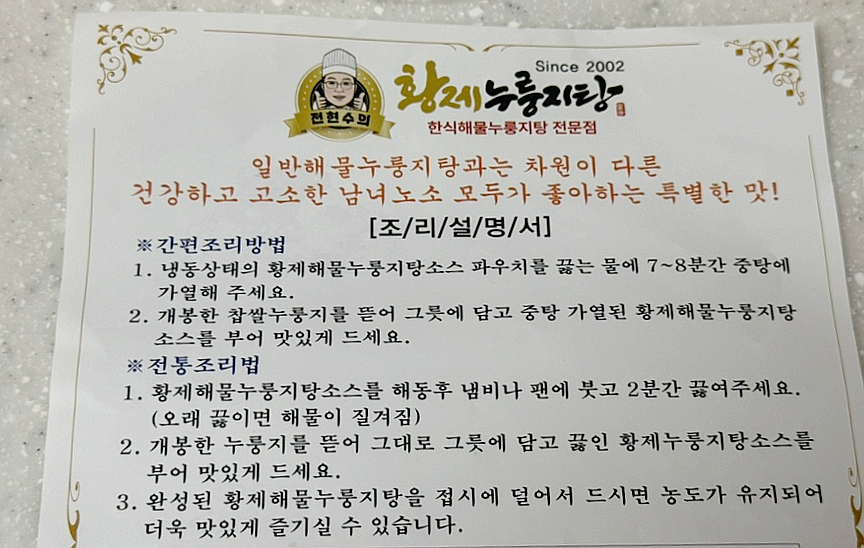 Since 2002
전현수의
황제누룽지탕
한식해물누룽지탕 전문점
일반해물누룽지탕과는 차원이 다른
건강하고 고소한 남녀노소 모두가 좋아하는 특별한 맛!
[조/리/설/명/서]
※간편조리방법
1. 냉동상태의 황제해물누룽지탕소스 파우치를 끓는 물에 7~8분간 중탕에
가열해 주세요.
2. 개봉한 찹쌀누룽지를 뜯어 그릇에 담고 중탕 가열된 황제해물누룽지탕
소스를 부어 맛있게 드세요.
※전통조리법
1. 황제해물누룽지탕소스를 해동후 냄비나 팬에 붓고 2분간 끓여주세요.
(오래 끓이면 해물이 질겨짐)
2. 개봉한 누룽지를 뜯어 그대로 그릇에 담고 끓인 황제누룽지탕소스를
부어 맛있게 드세요.
3. 완성된 황제해물누룽지탕을 접시에 덜어서 드시면 농도가 유지되어
더욱 맛있게 즐기실 수 있습니다.